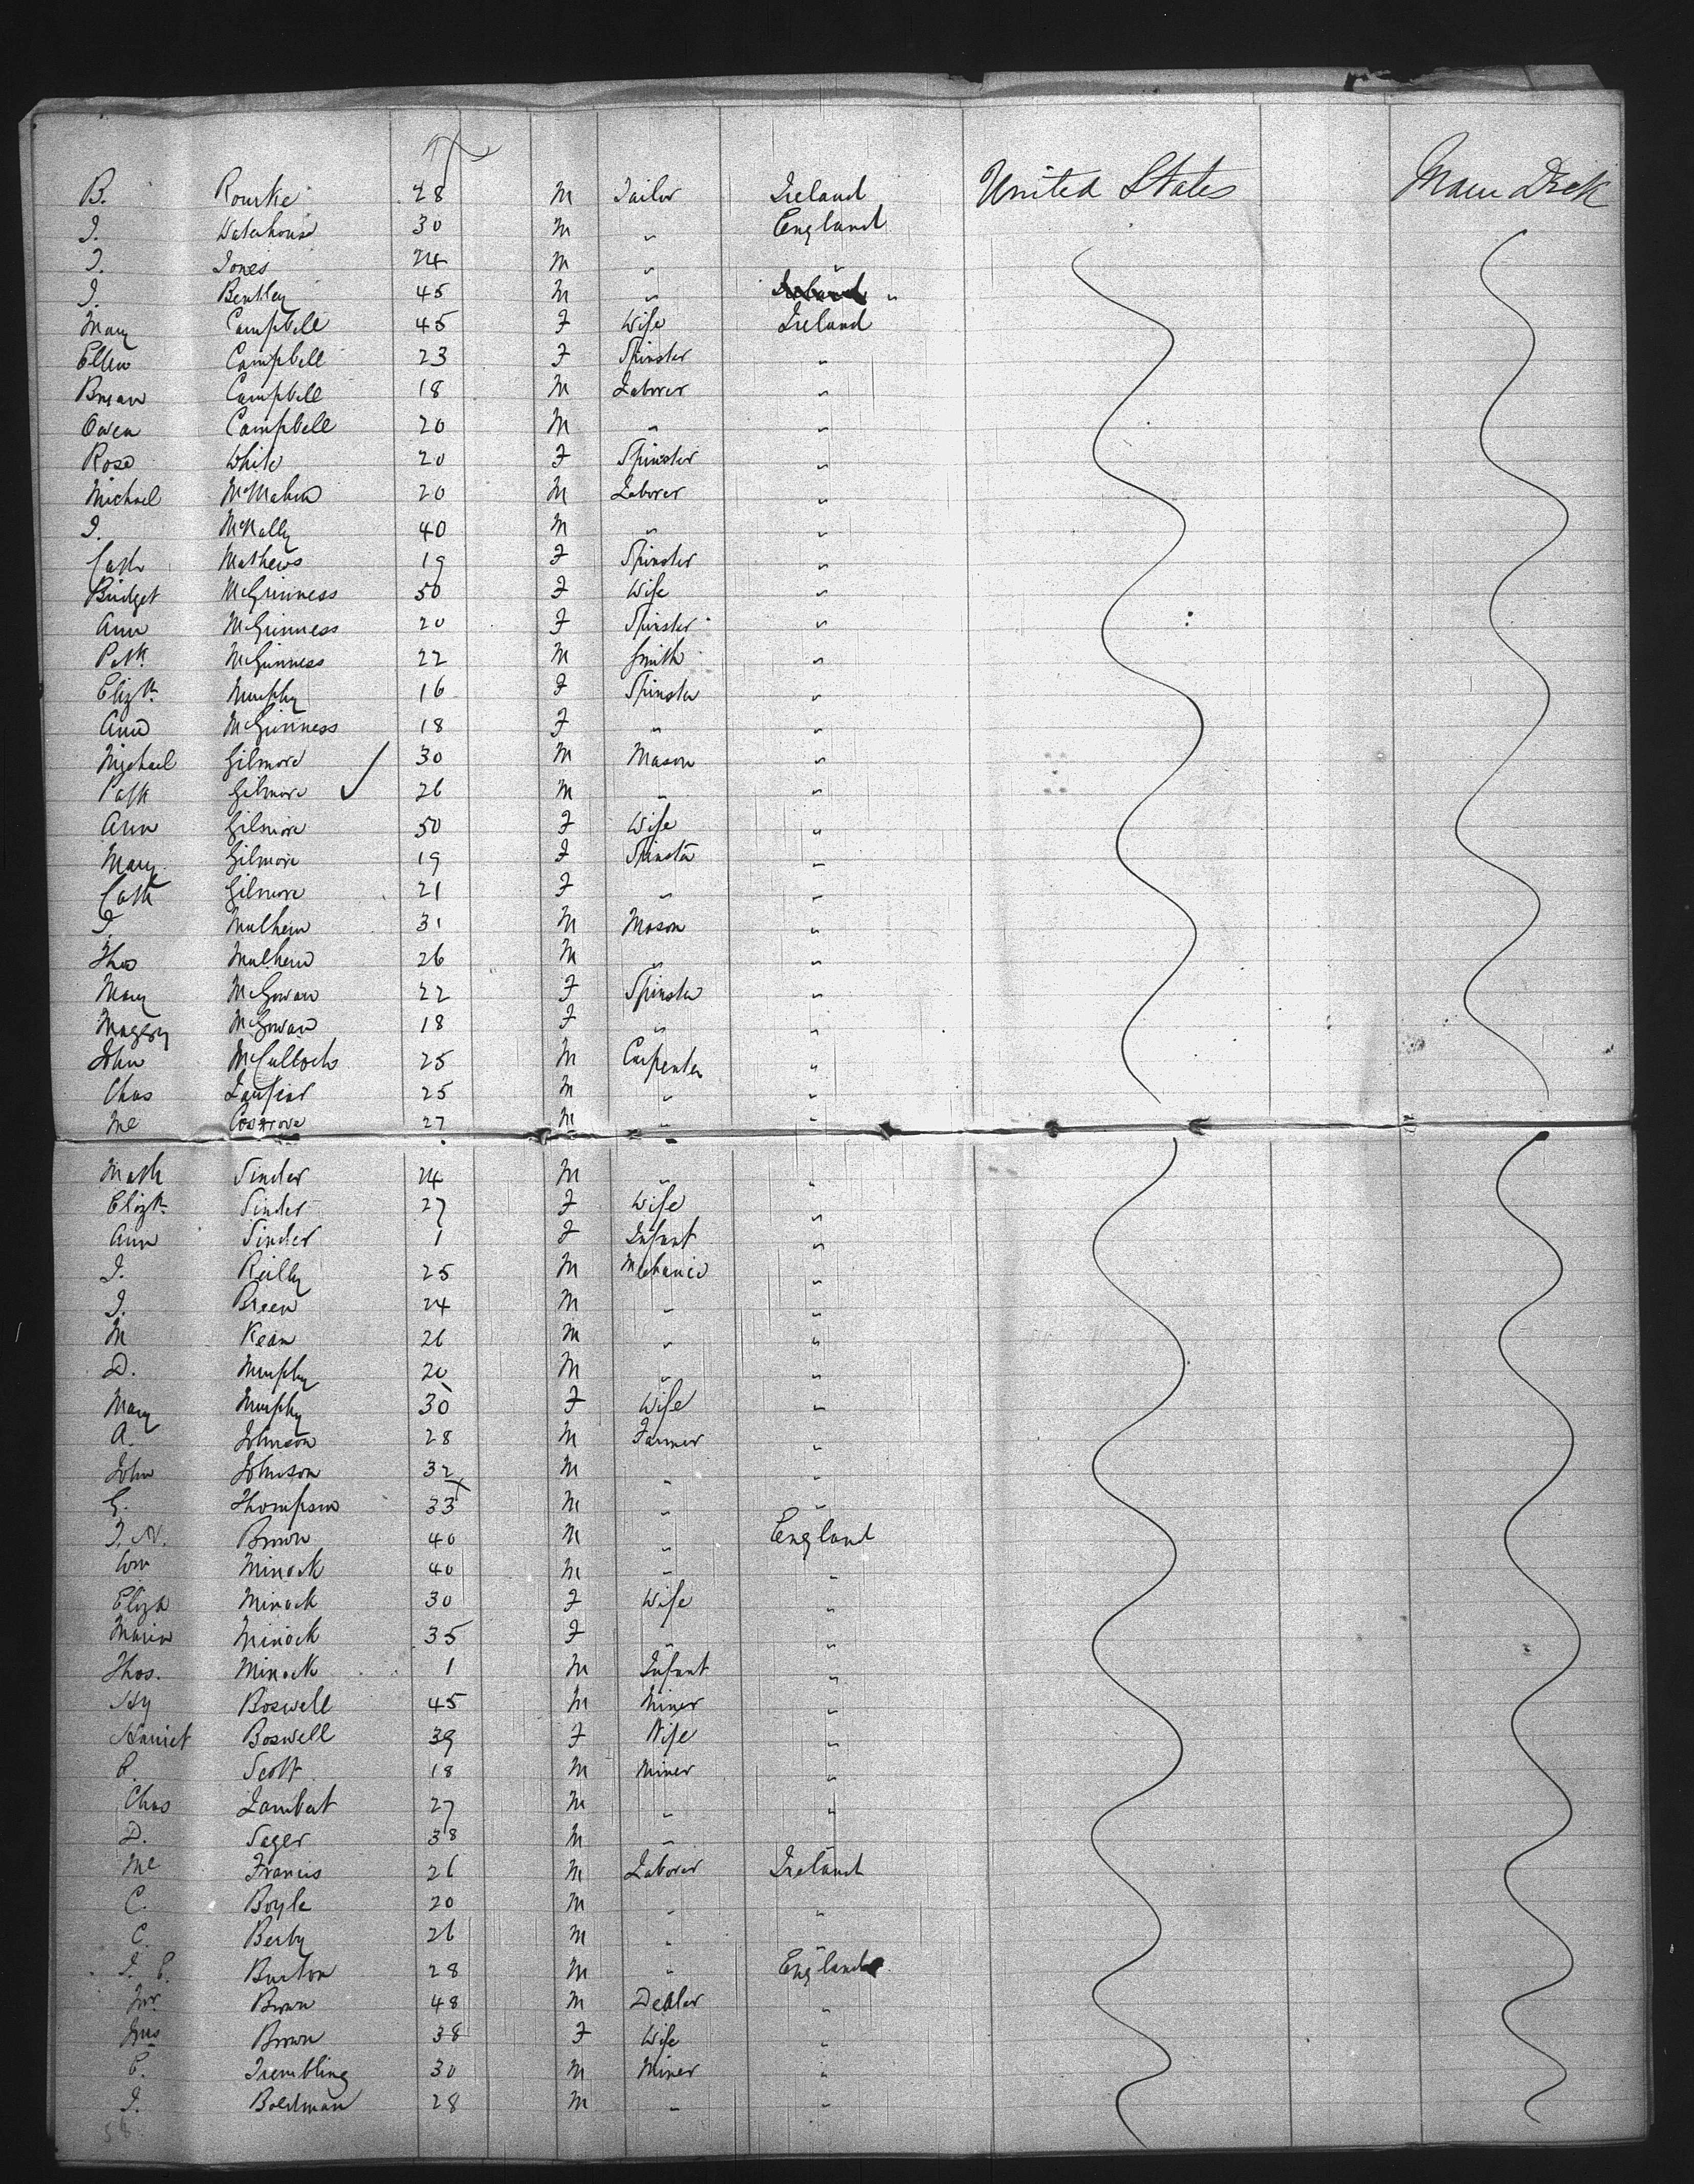 B. Rourke 28 M Tailor Ireland United States Main Deck
J. Waterhouse 30 M " England
J. Jones 24 M " "
J. Bentley 45 M " "
Mary Campbell 45 F Wife Ireland
Ellen Campbell 23 F Spinster "
Campbell 18 M Laborer "
Owen Campbell 20 M " "
Rose White 20 F Spinster "
Michael McMahon 20 M Laborer "
J. McNally 40 M " "
Cath Mathews 19 F Spinster "
Bridget McGuinness 50 F Wife "
Ann McGuinness 20 F Spinster "
Patk McGuinness 22 M Smith "
Elizth Murphy 16 F Spinster "
Ann McGuinness 18 F " "
Michael Gilmore 30 M Mason "
Patk Gilmore ✓ 26 M " "
Ann Gilmore 50 F Wife "
Mary Gilmore 19 F Spinster "
Cath Gilmore 21 F " "
J. Mulhern 31 M Mason "
Thos Mulhern 26 M " "
Mary McGowan 22 F Spinster "
McGowan 18 F " "
John McCulloch 25 M Carpenter "
Chas 25 M " "
Ml Cosgrove 27 M " "
Math Sinder 24 M " "
Elizth Sinder 27 F Wife "
Ann Sinder 1 F Infant "
J. Reilly 25 M Mechanic "
J. Breen 24 M " "
M Kean 26 M " "
D. Murphy 20 M " "
Mary Murphy 30 F Wife "
A. Johnson 28 M Farmer "
John Johnson 32 M " "
G. Thompson 33 M " "
J. N. Brown 40 M " England
Wm Minock 40 M " "
Eliza Minock 30 F Wife "
Maria Minock 35 F " "
Thos. Minock 1 M Infant "
Hy Boswell 45 M Miner "
Harriet Boswell 39 F Wife "
R. Scott 18 M Miner "
Chas Lambert 27 M " "
D. Sager 38 M " "
Ml Francis 26 M Laborer Ireland
C. Boyle 20 M " "
C. 26 M " "
J. E. Burton 28 M " England
Mr. Brown 48 M Dealer "
Mrs Brown 38 F Wife "
Trembling 30 M Miner "
J. Boldman 28 M " "
58